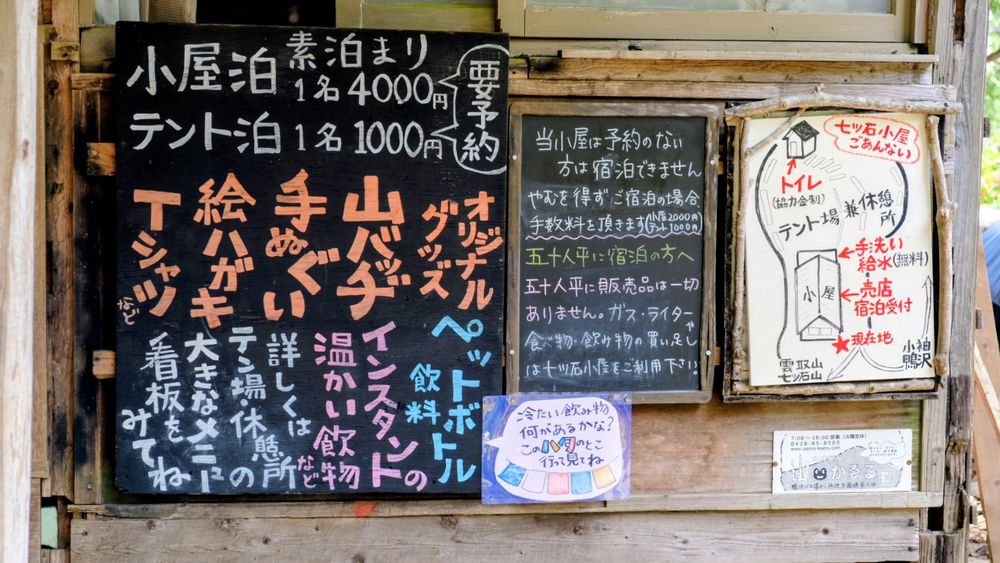 小屋泊 素泊まり 1名 4000円
テント泊 1名 1000円
要予約
オリジナル
グッズ
山バッヂ
手ぬぐい
絵ハガキ
Tシャツ
など
ペットボトル
飲料
インスタントの
温かい飲物
など
詳しくは
テン場・休憩所の
大きなメニューの
看板を
みてね
当小屋は予約のない
方は宿泊できません
やむを得ずご宿泊の場合
手数料を頂きます(小屋2000円 テント1000円)
五十人平に宿泊の方へ
五十人平に販売品は一切
ありません。ガス・ライター
食べ物・飲み物の買い足し
は七ツ石小屋をご利用下さい。
七ツ石小屋
ごあんない
トイレ
(協力金制)
テント場 兼 休憩所
手洗い
給水(無料)
小屋
売店
宿泊受付
現在地
小袖
鴨沢
雲取山
七ツ石山
冷たい飲み物
何があるかな?
このハタのとこ
行って見てね
7:00~18:00 営業(火曜定休)
0428-85-8505